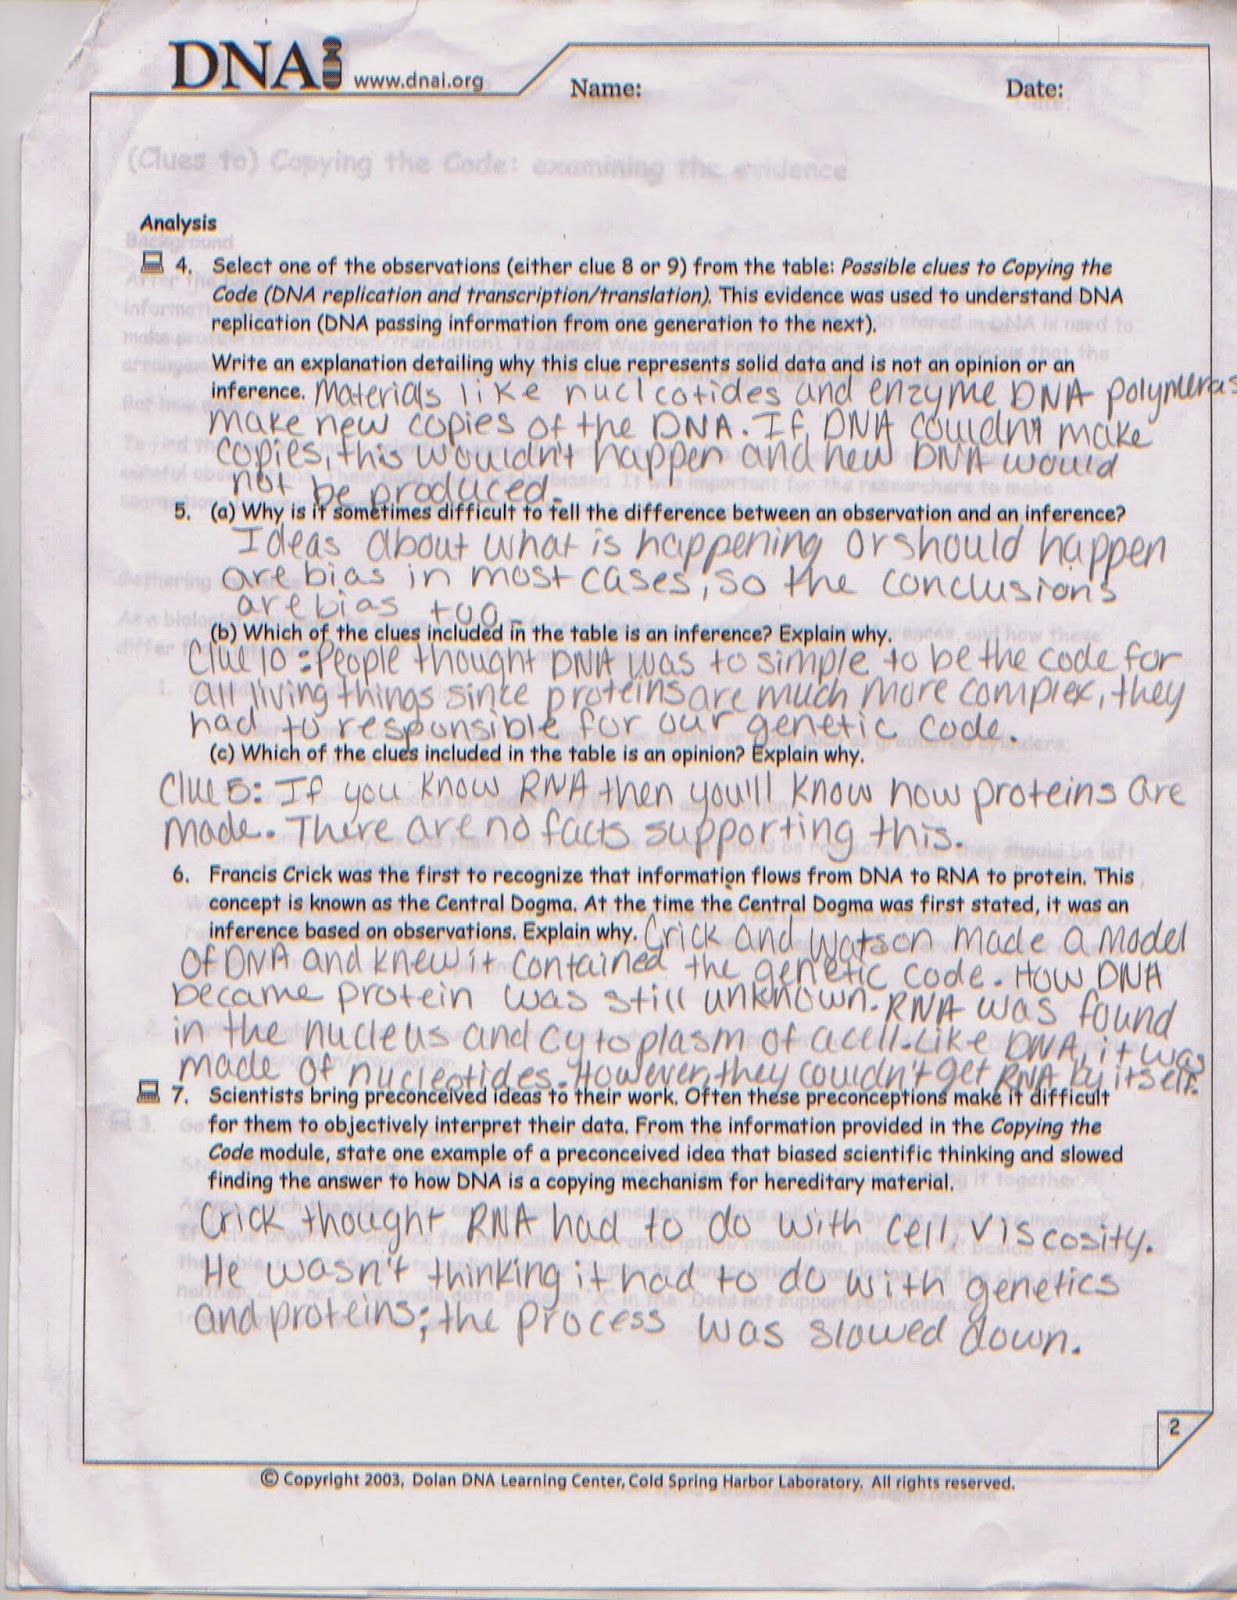 DNAi www.dnai.org
Name: Date:
(Clues to) Copying the Code: examining the evidence
Analysis
4. Select one of the observations (either clue 8 or 9) from the table: Possible clues to Copying the
Code (DNA replication and transcription/translation). This evidence was used to understand DNA
replication (DNA passing information from one generation to the next).
Write an explanation detailing why this clue represents solid data and is not an opinion or an
inference. Materials like nucleotides and enzyme DNA polymeras
make new copies of the DNA. If DNA couldn't make
copies, this wouldn't happen and new DNA would
not be produced.
5. (a) Why is it sometimes difficult to tell the difference between an observation and an inference?
Ideas about what is happening or should happen
are bias in most cases, so the conclusions
are bias too.
(b) Which of the clues included in the table is an inference? Explain why.
Clue 10: People thought DNA was to simple to be the code for
all living things since proteins are much more complex, they
had to responsible for our genetic code.
(c) Which of the clues included in the table is an opinion? Explain why.
Clue 5: If you know RNA then you'll know how proteins are
made. There are no facts supporting this.
6. Francis Crick was the first to recognize that information flows from DNA to RNA to protein. This
concept is known as the Central Dogma. At the time the Central Dogma was first stated, it was an
inference based on observations. Explain why. Crick and Watson made a model
of DNA and knew it contained the genetic code. How DNA
became protein was still unknown. RNA was found
in the nucleus and cytoplasm of a cell. Like DNA, it was
made of nucleotides. However, they couldn't get RNA by itself.
7. Scientists bring preconceived ideas to their work. Often these preconceptions make it difficult
for them to objectively interpret their data. From the information provided in the Copying the
Code module, state one example of a preconceived idea that biased scientific thinking and slowed
finding the answer to how DNA is a copying mechanism for hereditary material.
Crick thought RNA had to do with cell viscosity.
He wasn't thinking it had to do with genetics
and proteins; the process was slowed down.
2
© Copyright 2003, Dolan DNA Learning Center, Cold Spring Harbor Laboratory. All rights reserved.